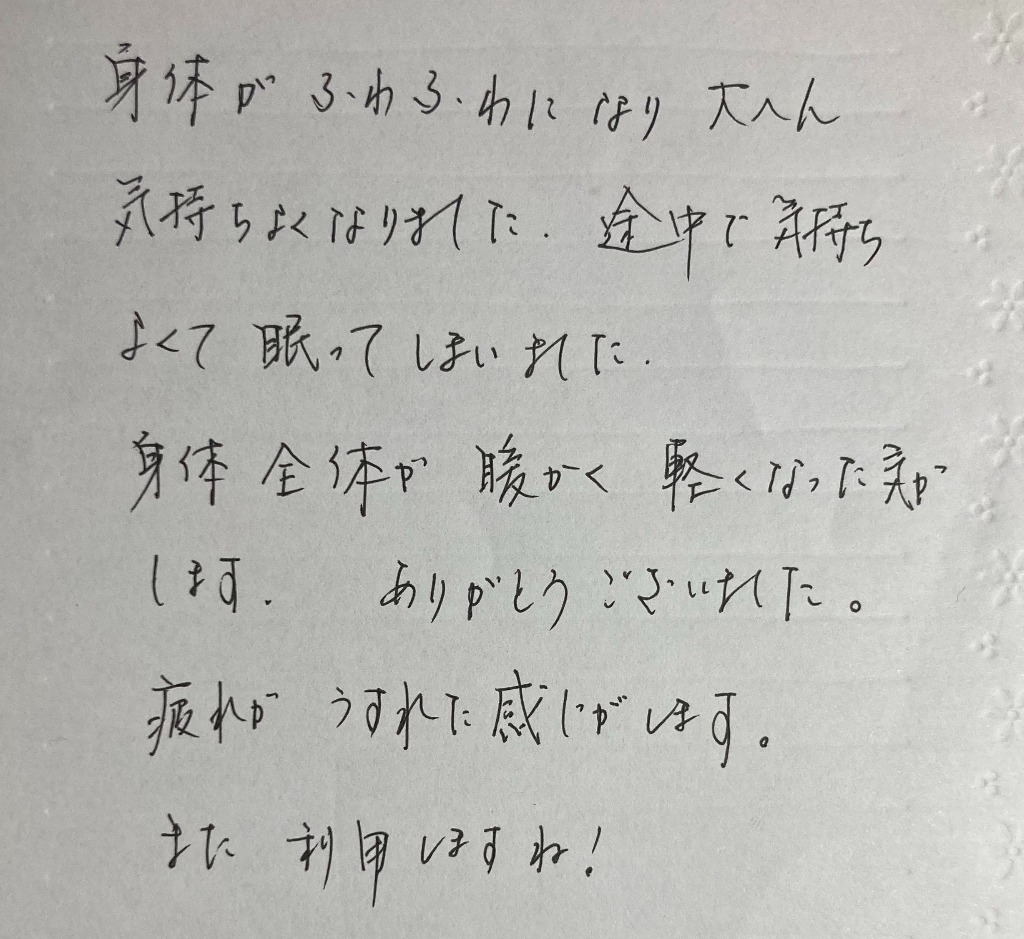 身体がふわふわになり 大へん
気持ちよくなりました. 途中で気持ち
よくて 眠ってしまいました.
身体全体が 暖かく 軽くなった気が
します. ありがとうございました。
疲れが うすれた感じがします。
また 利用しますね!